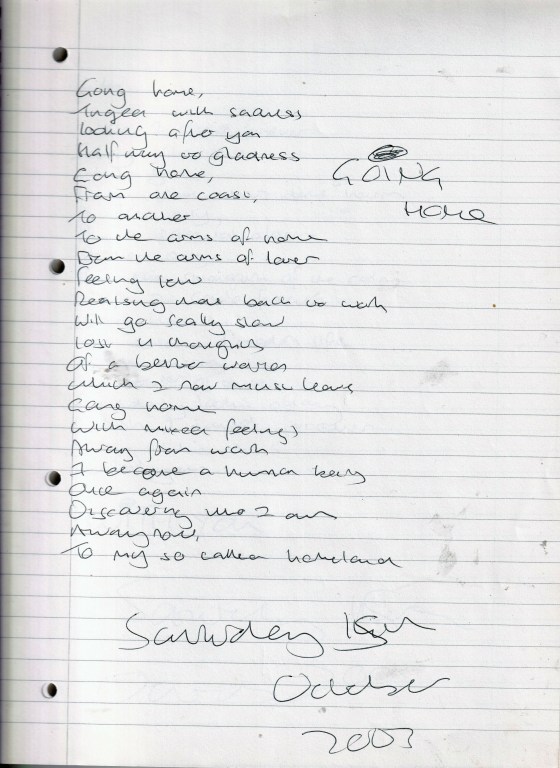 Going home,
Tinged with sadness
looking after you
Half way to gladness
Going home,
From one coast,
To another
To the arms of home
From the arms of lover
feeling low
Realising that back to work
Will go really slow
Lost in thoughts
Of a better world
which I now must leave
Going home
With mixed feelings
Away from work
I become a human being
Once again
Discovering who I am
Away now,
To my so called homeland
GOING
HOME
Saturday
October
2003